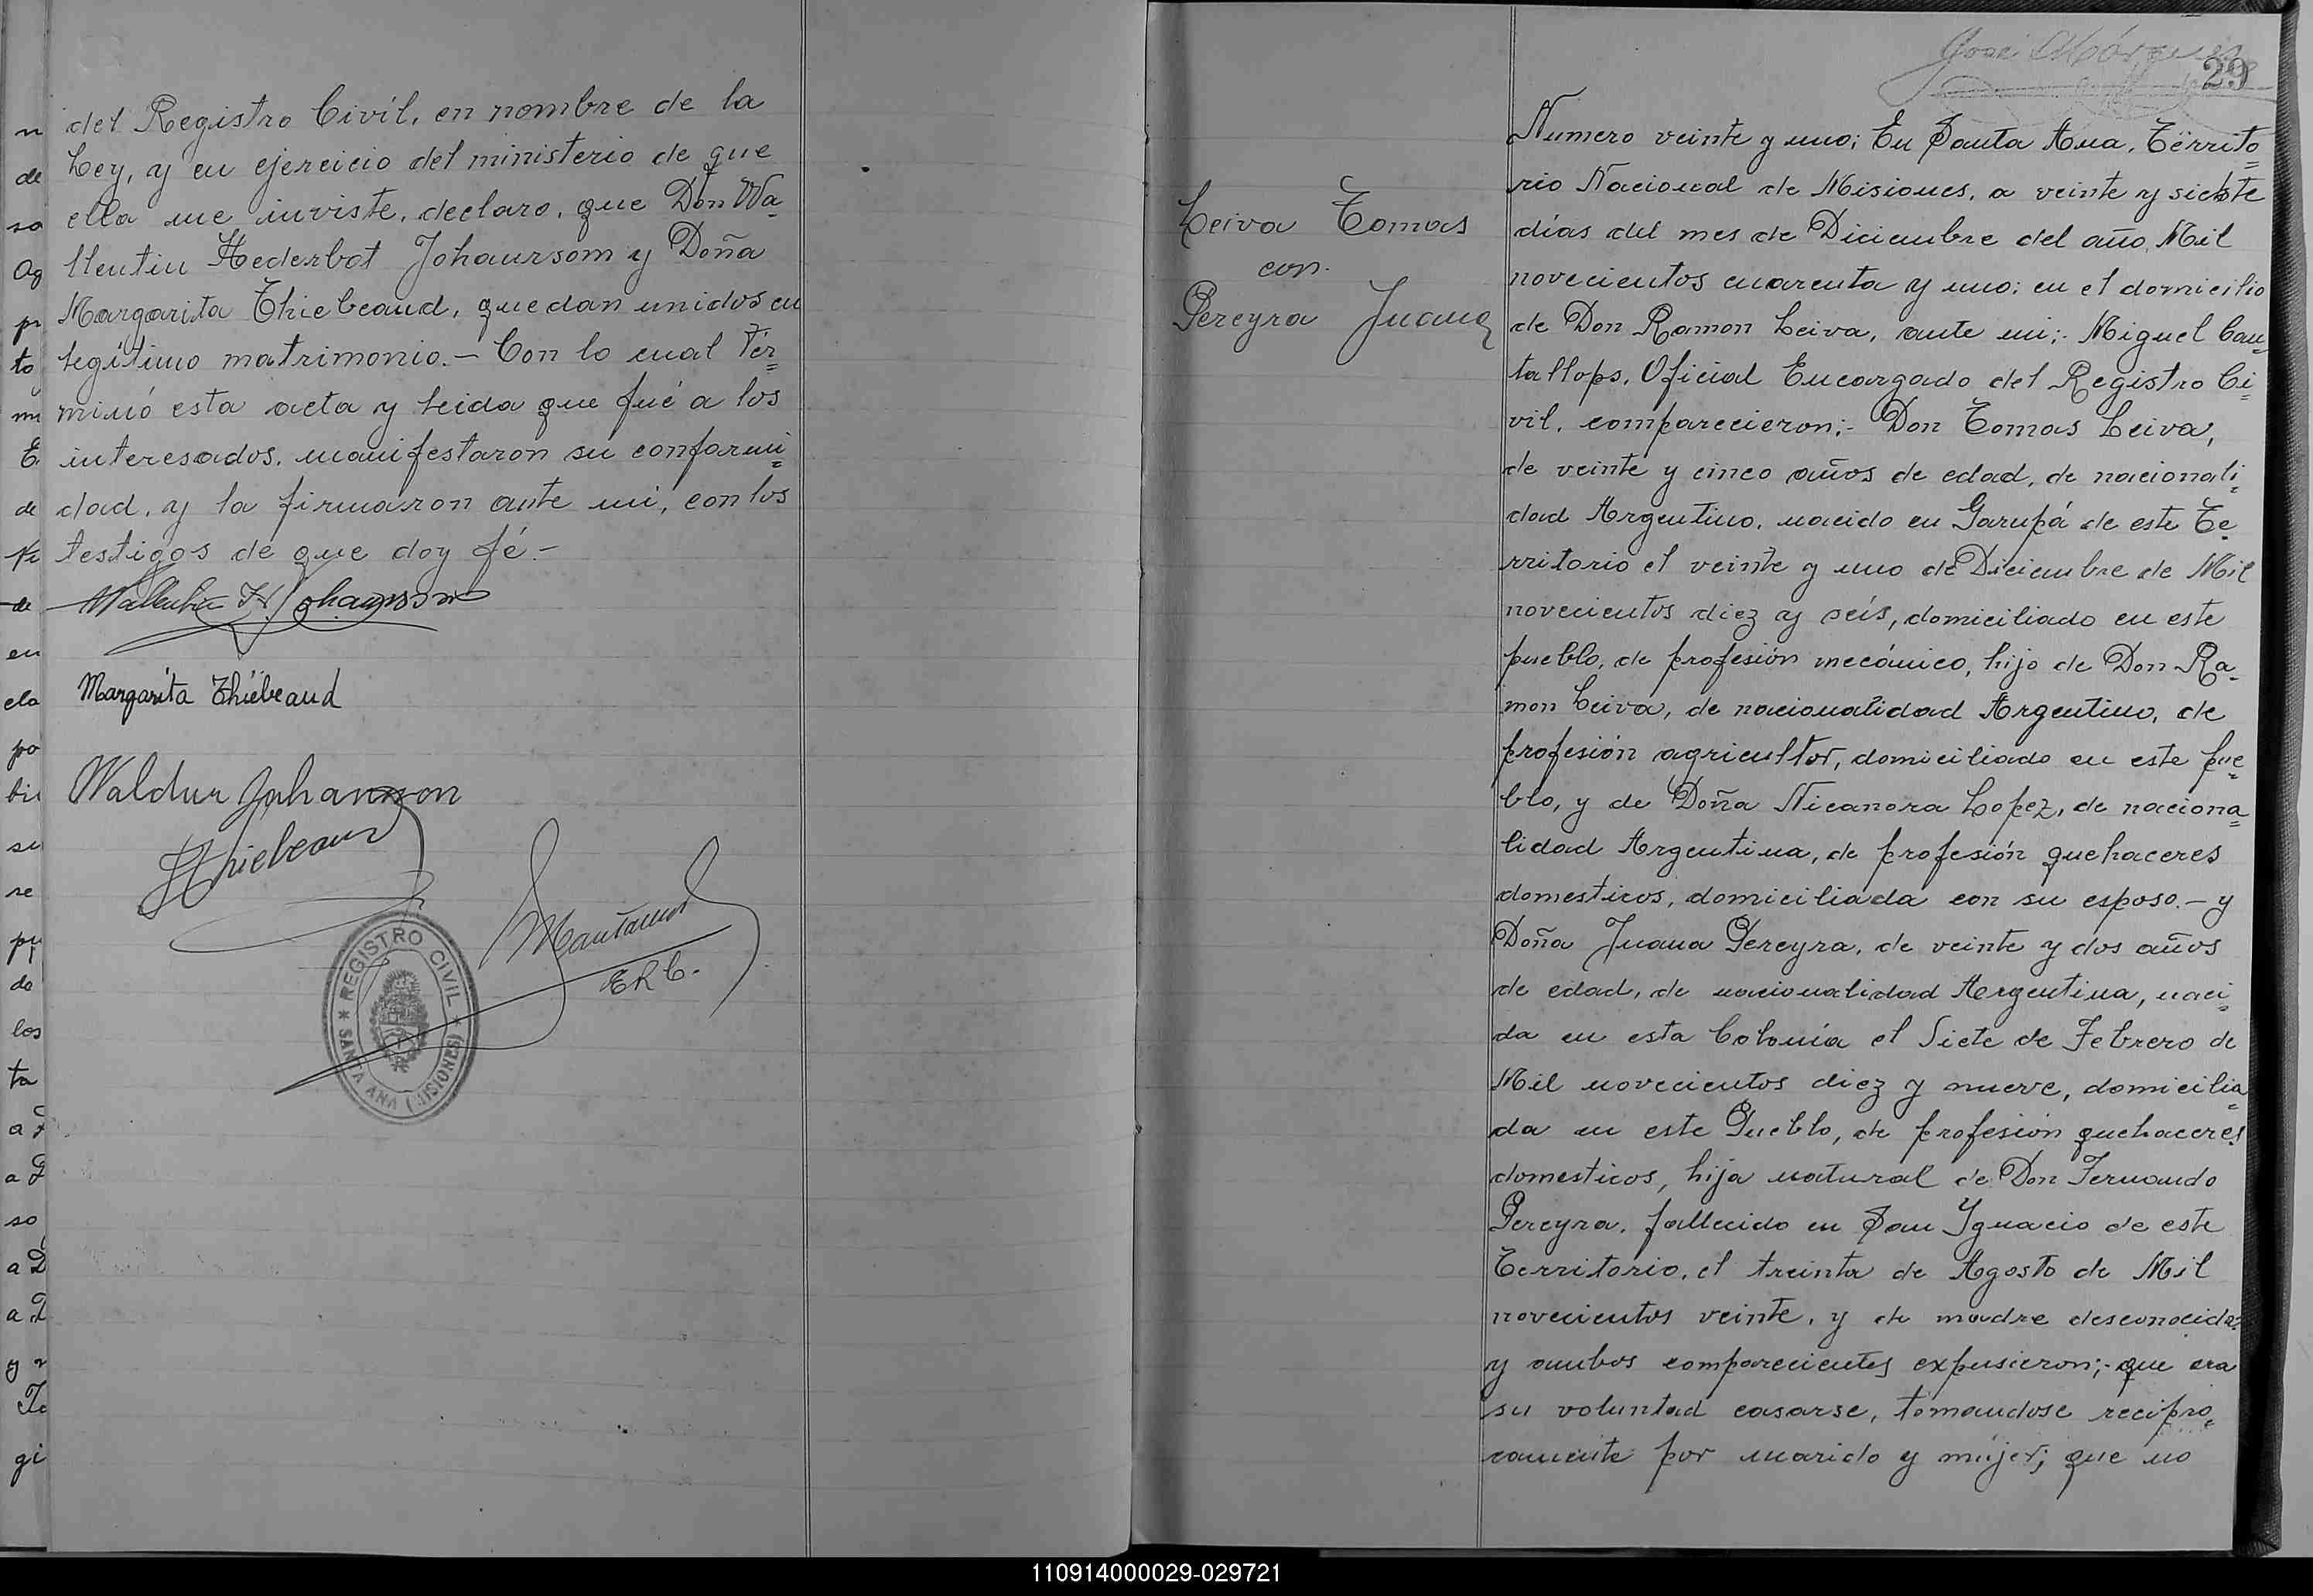 del Registro Civil, en nombre de la
Ley, y en ejercicio del ministerio de que
ella me inviste, declaro, que Don Wa=
llentin Hederbot Johaursom y Doña
Margarita Thiebeaud, quedan unidos en
legítimo matrimonio.- Con lo cual Tér=
minó esta acta y leida que fué a los
interesados, manifestaron su conformi=
dad, y la firmaron ante mi, con los
testigos de que doy fé.-
Margarita Thiebeaud
Waldur Johannson
Thiebeaud
E R C.
* REGISTRO CIVIL *
SANTA ANA (MISIONES)
29
Leiva Tomas
con.
Pereyra Juana
Numero veinte y uno; En Santa Ana, Térrito=
rio Nacional de Misiones, a veinte y siete
días del mes de Diciembre del año, Mil
novecientos cuarenta y uno; en el domicilio
de Don Ramon Leiva, ante mi;- Miguel Can=
tallops, Oficial Encargado del Registro Ci=
vil, comparecieron;- Don Tomas Leiva,
de veinte y cinco años de edad, de nacionali=
dad Argentino, nacido en Garupá de este Te=
rritorio el veinte y uno de Diciembre de Mil
novecientos diez y seís, domiciliado en este
pueblo, de profesión mecánico, hijo de Don Ra=
mon Leiva, de nacionalidad Argentino, de
profesión agricultor, domiciliado en este pue=
blo, y de Doña Nicanora Lopez, de naciona=
lidad Argentina, de profesión quehaceres
domesticos, domiciliada con su esposo.- y
Doña Juana Pereyra, de veinte y dos años
de edad, de nacionalidad Argentina, naci=
da en esta Colonía el Siete de Febrero de
Mil novecientos diez y nueve, domicilia=
da en este Pueblo, de profesión quehaceres
domesticos, hija natural de Don Fernando
Pereyra, fallecido en San Ygnacio de este
Territorio, el treinta de Agosto de Mil
novecientos veinte, y de madre desconocida;
y ambos comparecientes expusieron;- que era
su voluntad casarse, tomandose recipro=
camente por marido y mujer; que no
110914000029-029721